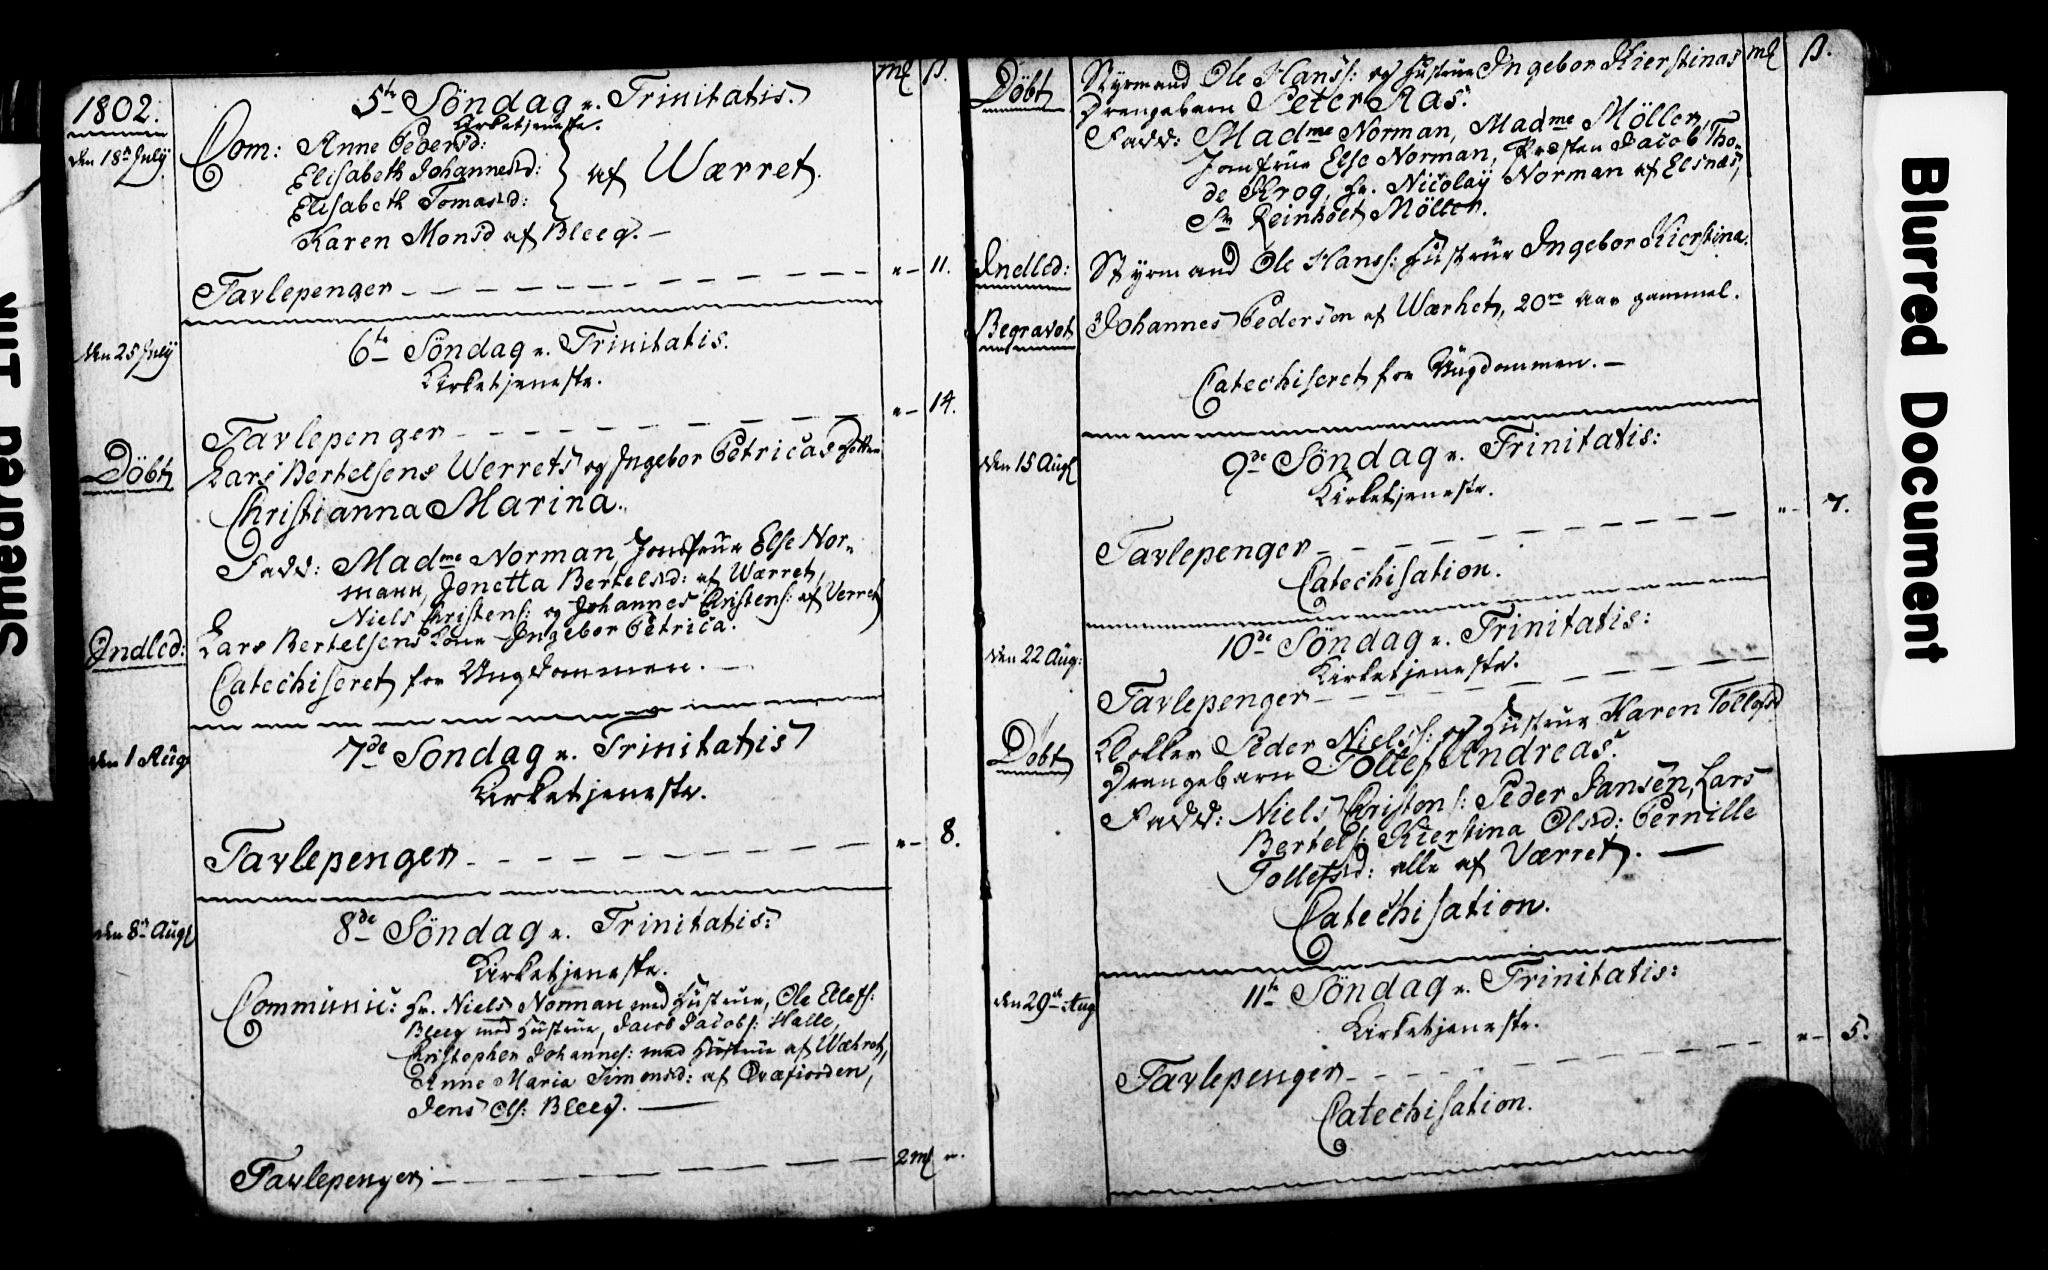 1802.
mk ß.
5te Söndag e. Trinitatis.
Kirketjeneste.
den 18de July
Com: Anne Pedersd:
Elisabeth Johannesd:
Elisabeth Tomasd:
af Wærret.
Karen Monsd af Bleeg. —
Tavlepenger — — — — — — — — " — 11.
den 25 July
6te Söndag e. Trinitatis.
Kirketjeneste.
Tavlepenger — — — — — — — — " — 14.
Döbt
Lars Bertelsens Werrets og Ingebor Petricas Datter
Christianna Marina.
Fadd: Madme Norman, Jomfrue Else Nor-
mann, Jonetta Bertelsd: af Wærret,
Niels Christens: og Johannes Christens: af Verret
Indled:
Lars Bertelsens Kone Ingebor Petrica.
Catechiseret for Ungdommen. —
den 1 Aug
7de Söndag e. Trinitatis
Kirketjeneste.
Tavlepenger — — — — — — — — " — 8.
den 8de Aug
8de Söndag e. Trinitatis:
Kirketjeneste.
Communic: Hr. Niels Norman med Hustrue, Ole Ellefs:
Bleeg med Hustrue, Jacob Jacobs: Halle,
Christopher Johannes: med Hustrue af Wæhret,
Anne Maria Simonsd: af Qvæfiorden,
Jens Ols: Bleeg. —
Tavlepenger — — — — — — 2 mk ".
mk ß.
Döbt
Styrmand Ole Hanss: og Hustrue Ingebor Kierstinas
Drengebarn Peter Aas.
Fadd: Madme Norman, Madme Möller,
Jomfrue Else Norman, Præsten Jacob Tho-
de Krog, Hr. Nicolay Norman af Elsnæs,
Sr Reinholt Möller.
Indled:
Styrmand Ole Hanss: Hustrue Ingebor Kierstina.
Begravet
Johannes Pederson af Wærhet, 20ve Aar gammel.
Catechiseret for Ungdommen. —
den 15 Aug
9de Söndag e. Trinitatis:
Kirketjeneste.
Tavlepenger — — — — — — — — " — 7.
Catechisation.
den 22 Aug:
10de Söndag e. Trinitatis:
Kirketjeneste.
Tavlepenger — — — — — — — —
Döbt
Klokker Peder Nielss: og Hustrue Karen Tollefsd
Drengebarn Tollef Andreas.
Fadd: Niels Christens: Peder Jansen, Lars
Bertels: Kierstina Olsd: Pernille
Tollefsd: alle af Værret. —
Catechisation.
den 29de Aug
11te Söndag e. Trinitatis:
Kirketjeneste.
Tavlepenger — — — — — — — — " — 5.
Catechisation.
Blurred Document